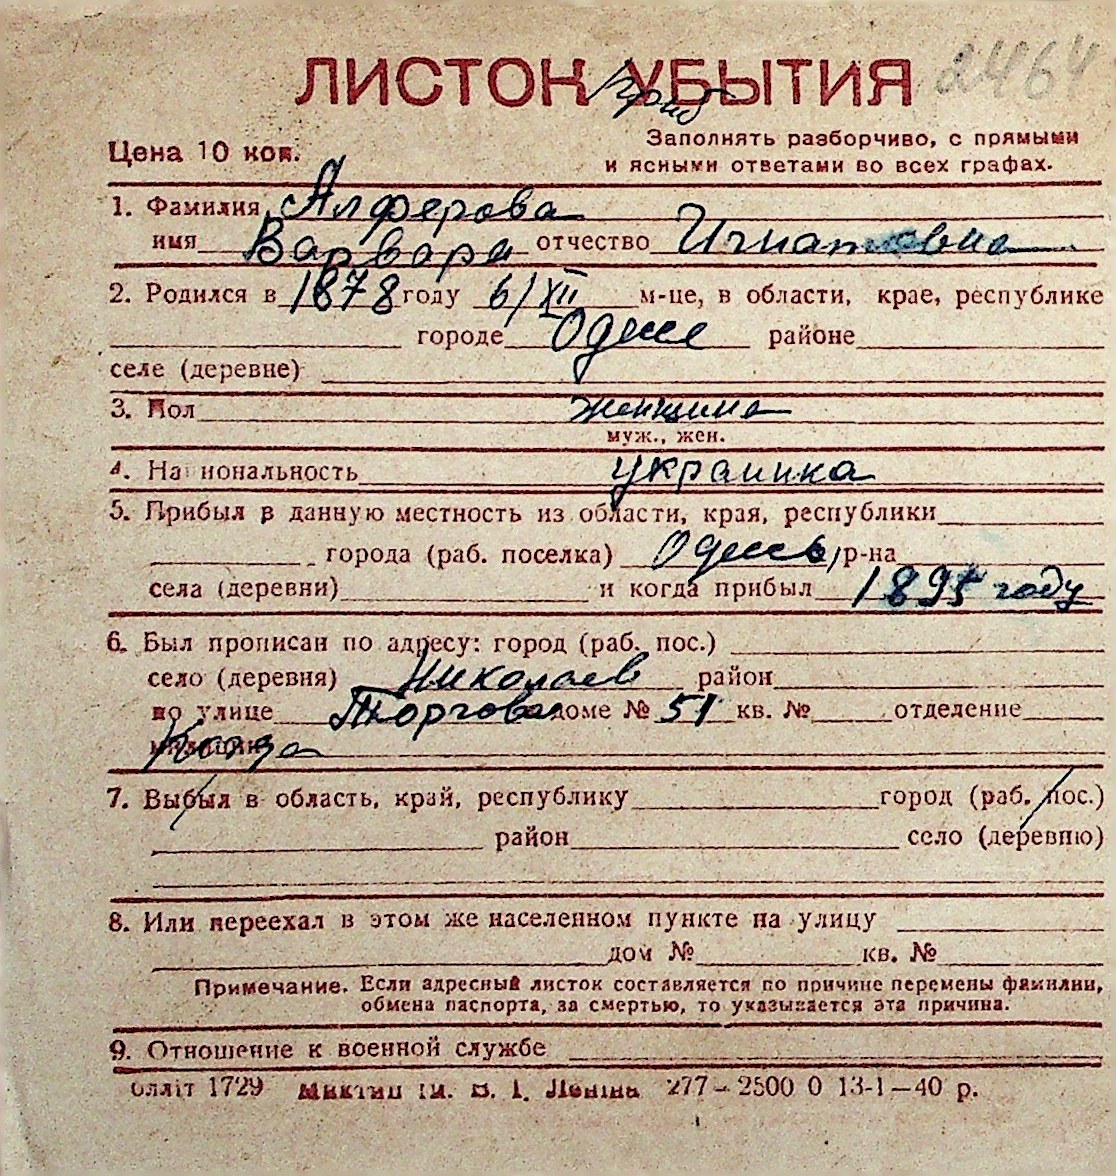 ЛИСТОК УБЫТИЯ
2464
приб
Цена 10 коп.
Заполнять разборчиво, с прямыми
и ясными ответами во всех графах.
1. Фамилия Алферова
имя Варвара отчество Игнатовна
2. Родился в 1878 году 6/XII м-це, в области, крае, республике
городе Одесс районе
селе (деревне)
3. Пол женщина
муж., жен.
4. Национальность украинка
5. Прибыл в данную местность из области, края, республики
города (раб. поселка) Одессы, р-на
села (деревни) и когда прибыл 1895 году
6. Был прописан по адресу: город (раб. пос.)
село (деревня) Николаев район
по улице Торговая доме № 51 кв. № отделение
милиции
7. Выбыл в область, край, республику город (раб. пос.)
район село (деревню)
8. Или переехал в этом же населенном пункте на улицу
дом № кв. №
Примечание. Если адресный листок составляется по причине перемены фамилии,
обмена паспорта, за смертью, то указывается эта причина.
9. Отношение к военной службе
Оллiт 1729 iм. В. I. Ленiна 277–2500 0 13-1–40 р.